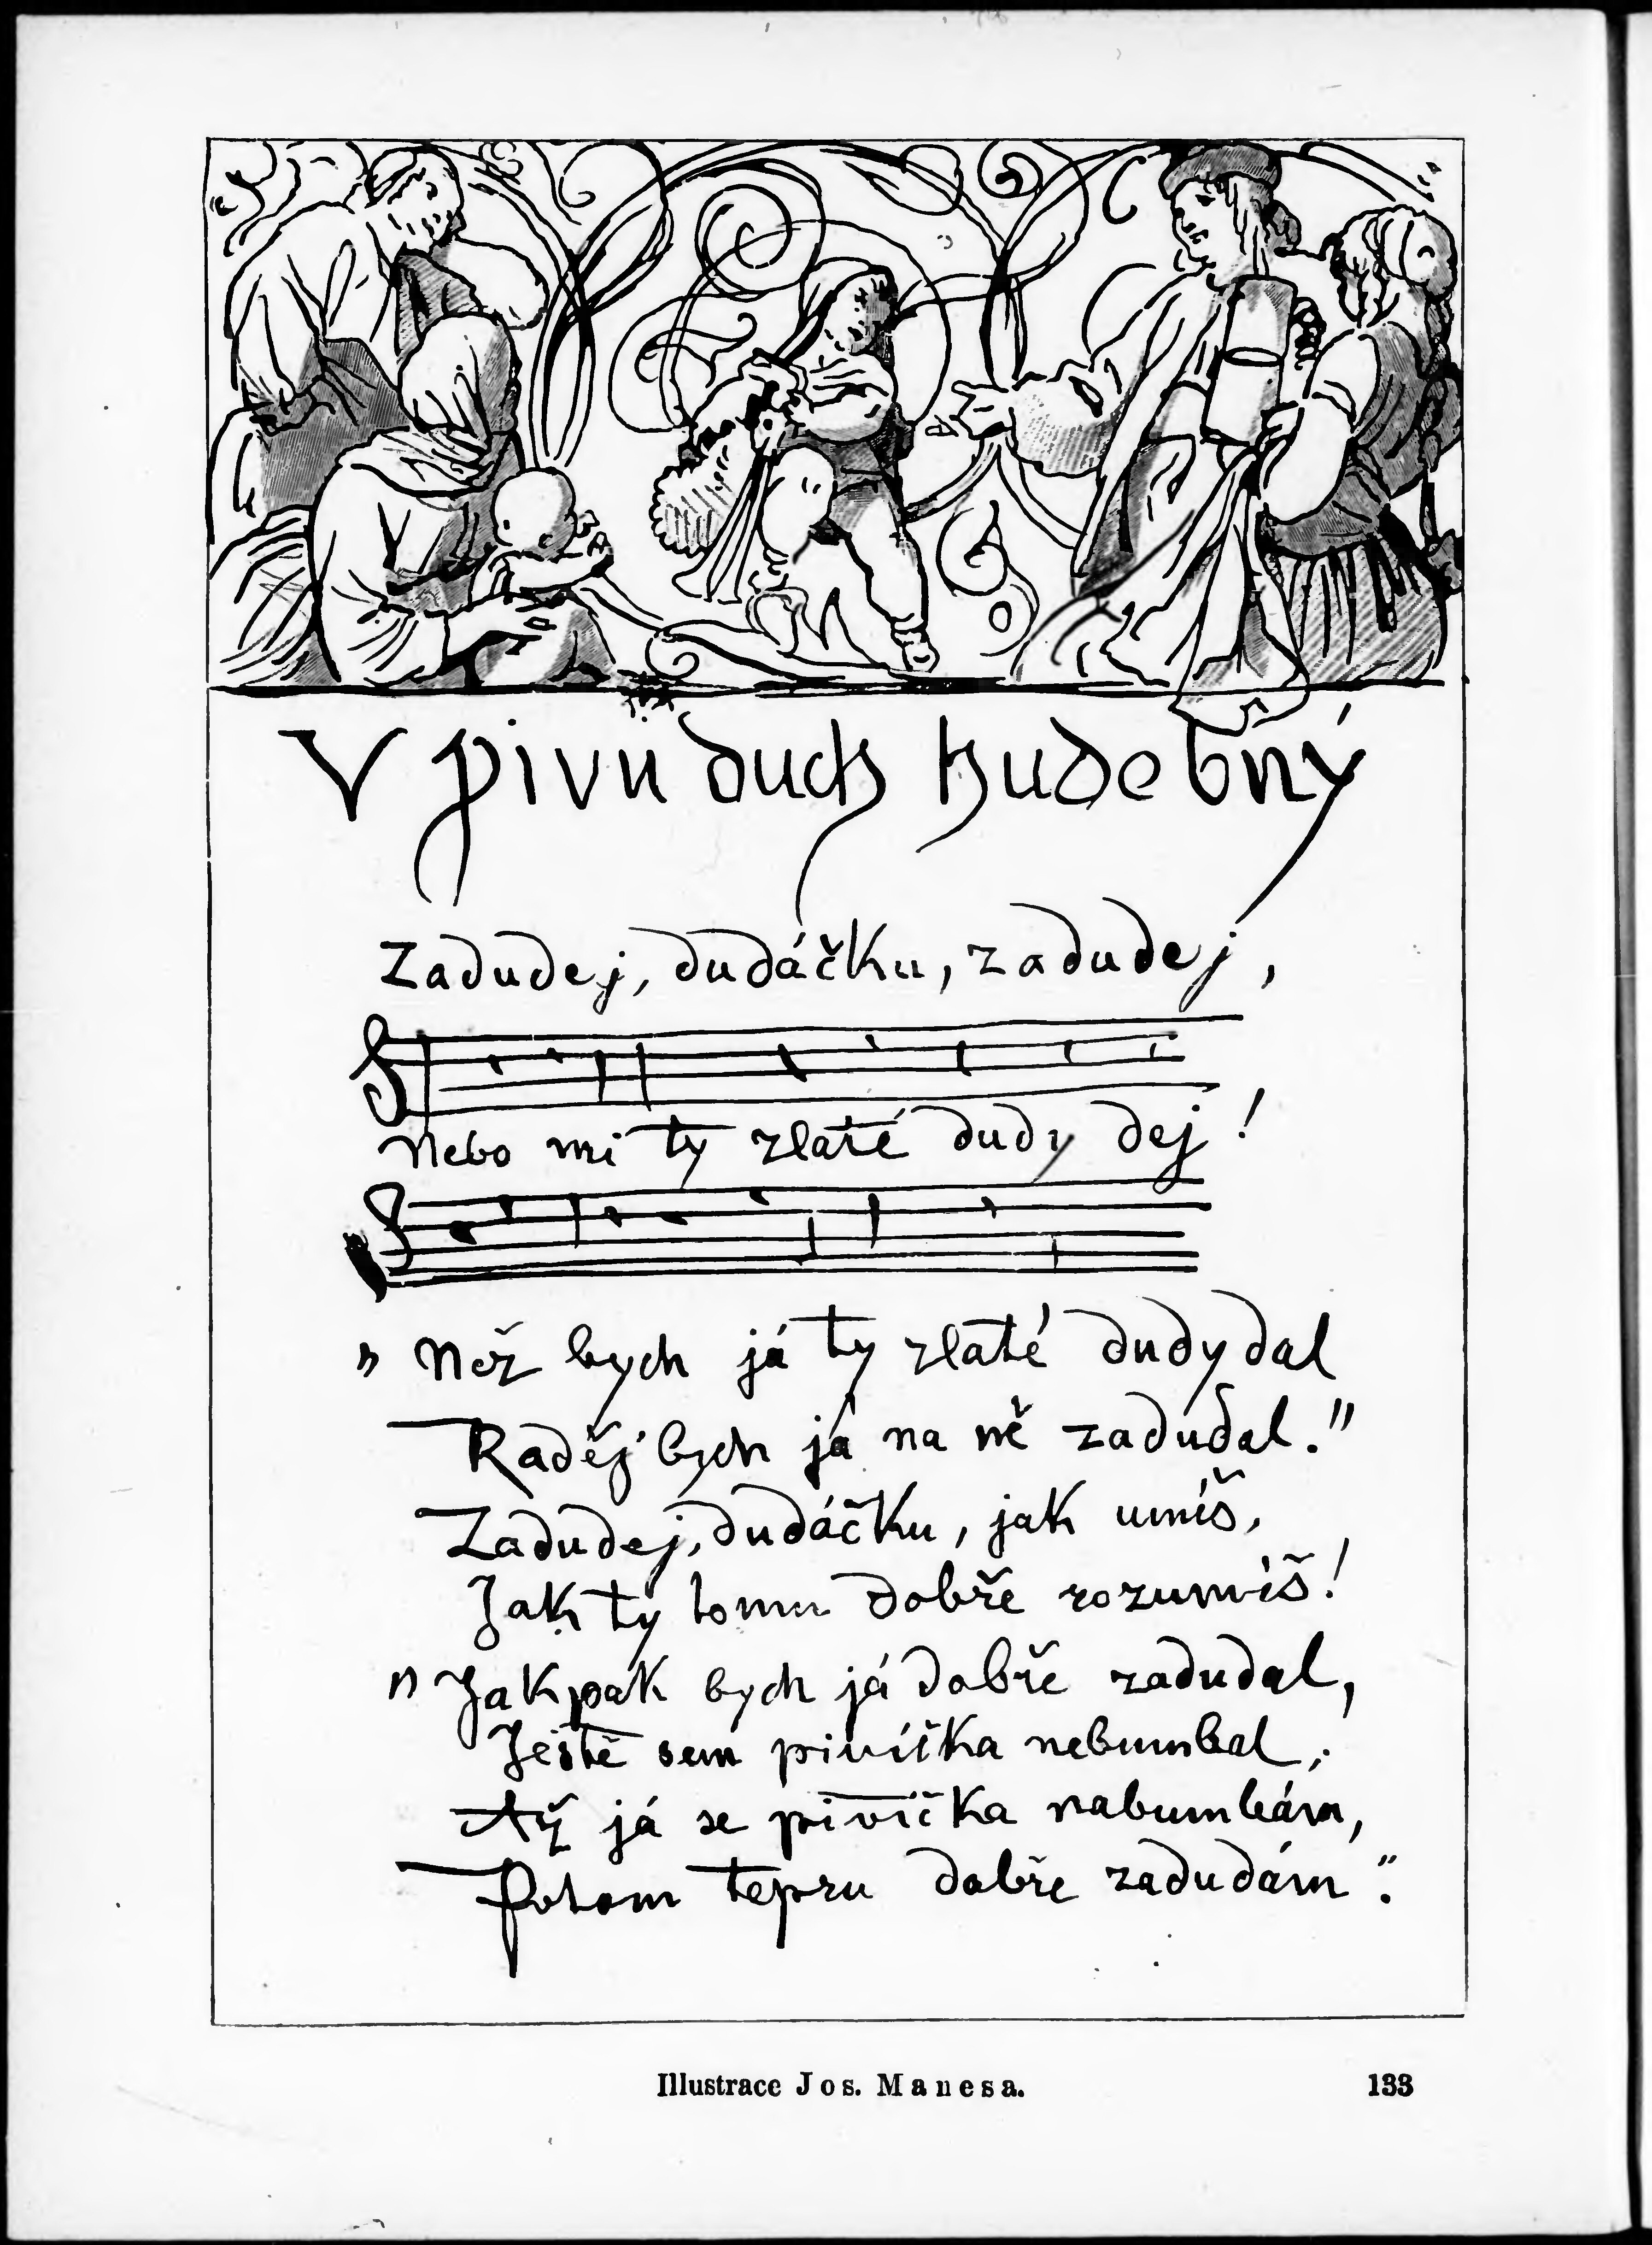 V pivu duch hudebný
Zadudej, dudáčku, zadudej,
Nebo mi ty zlaté dudy dej!
„Než bych já ty zlaté dudy dal
Raděj bych já na ně zadudal."
Zadudej, dudáčku, jak umíš,
Jak ty tomu dobře rozumíš!
„Jakpak bych já dobře zadudal,
Ještě sem pivíčka nebumbal;
Až já se pivíčka nabumbám,
Potom tepru dobře zadudám".
Illustrace Jos. Manesa. 133